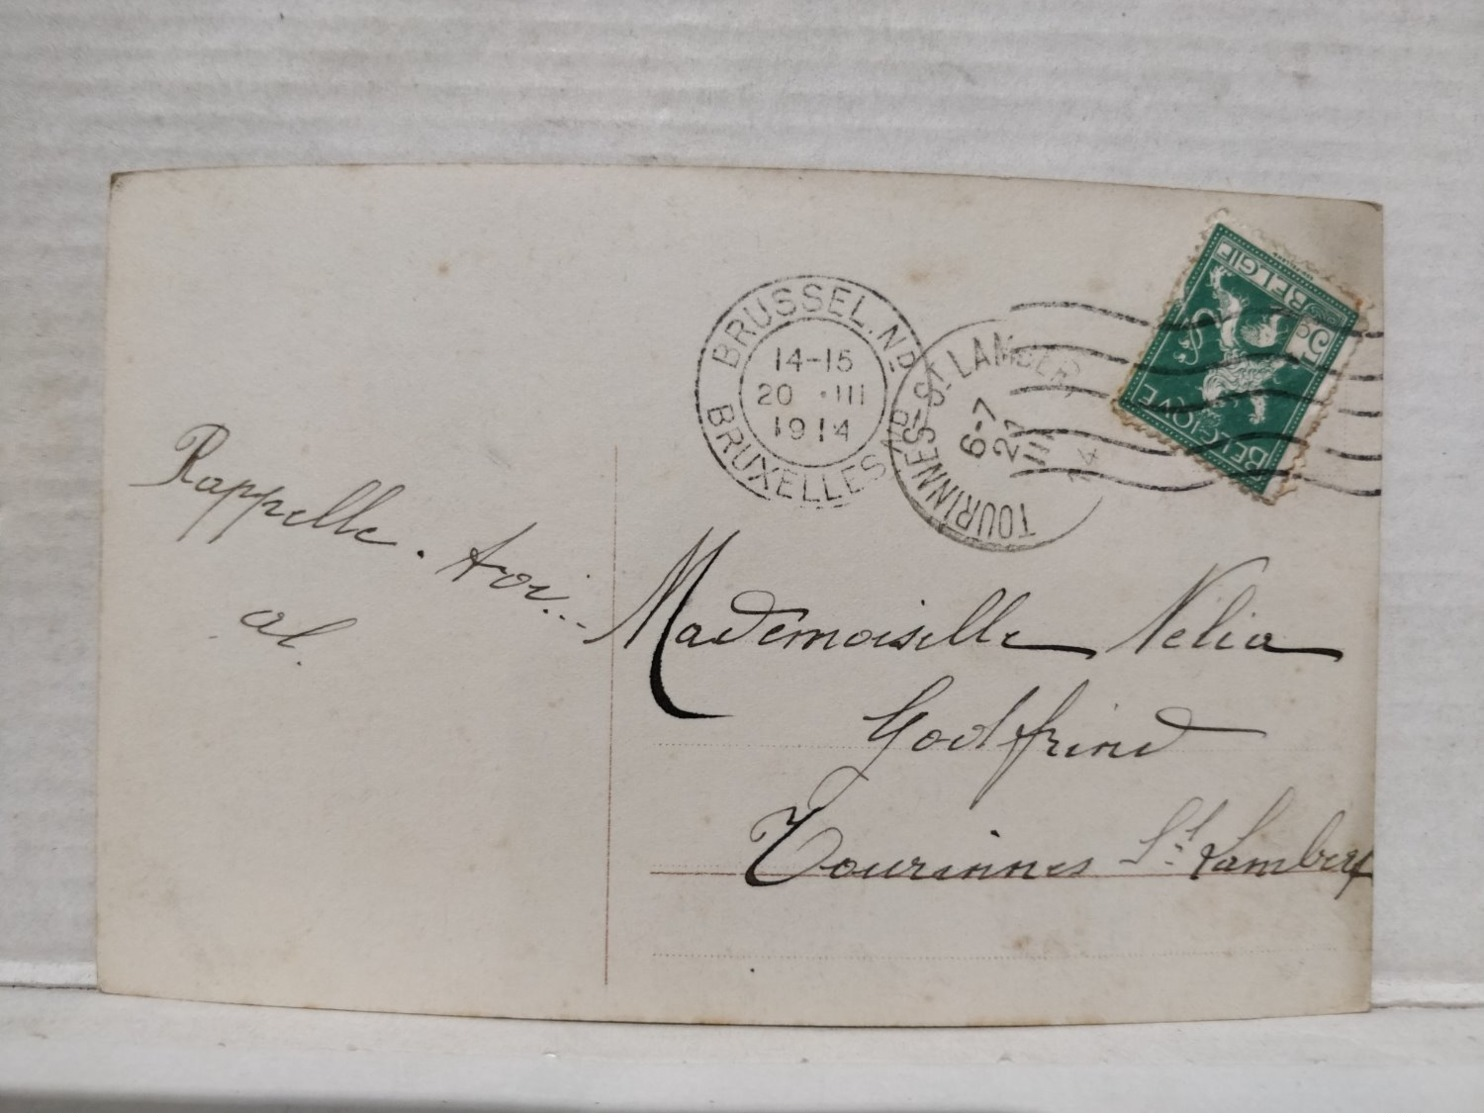 BRUSSEL. ND
14-15
20 III
1914
BRUXELLES ND
TOURINNES-ST LAMBER
6-7
21
III
BELGIQUE
BELGIE
5
Rappelle. toi...
al.
Mademoiselle Nelia
Godfrind
Tourinnes St Lambert